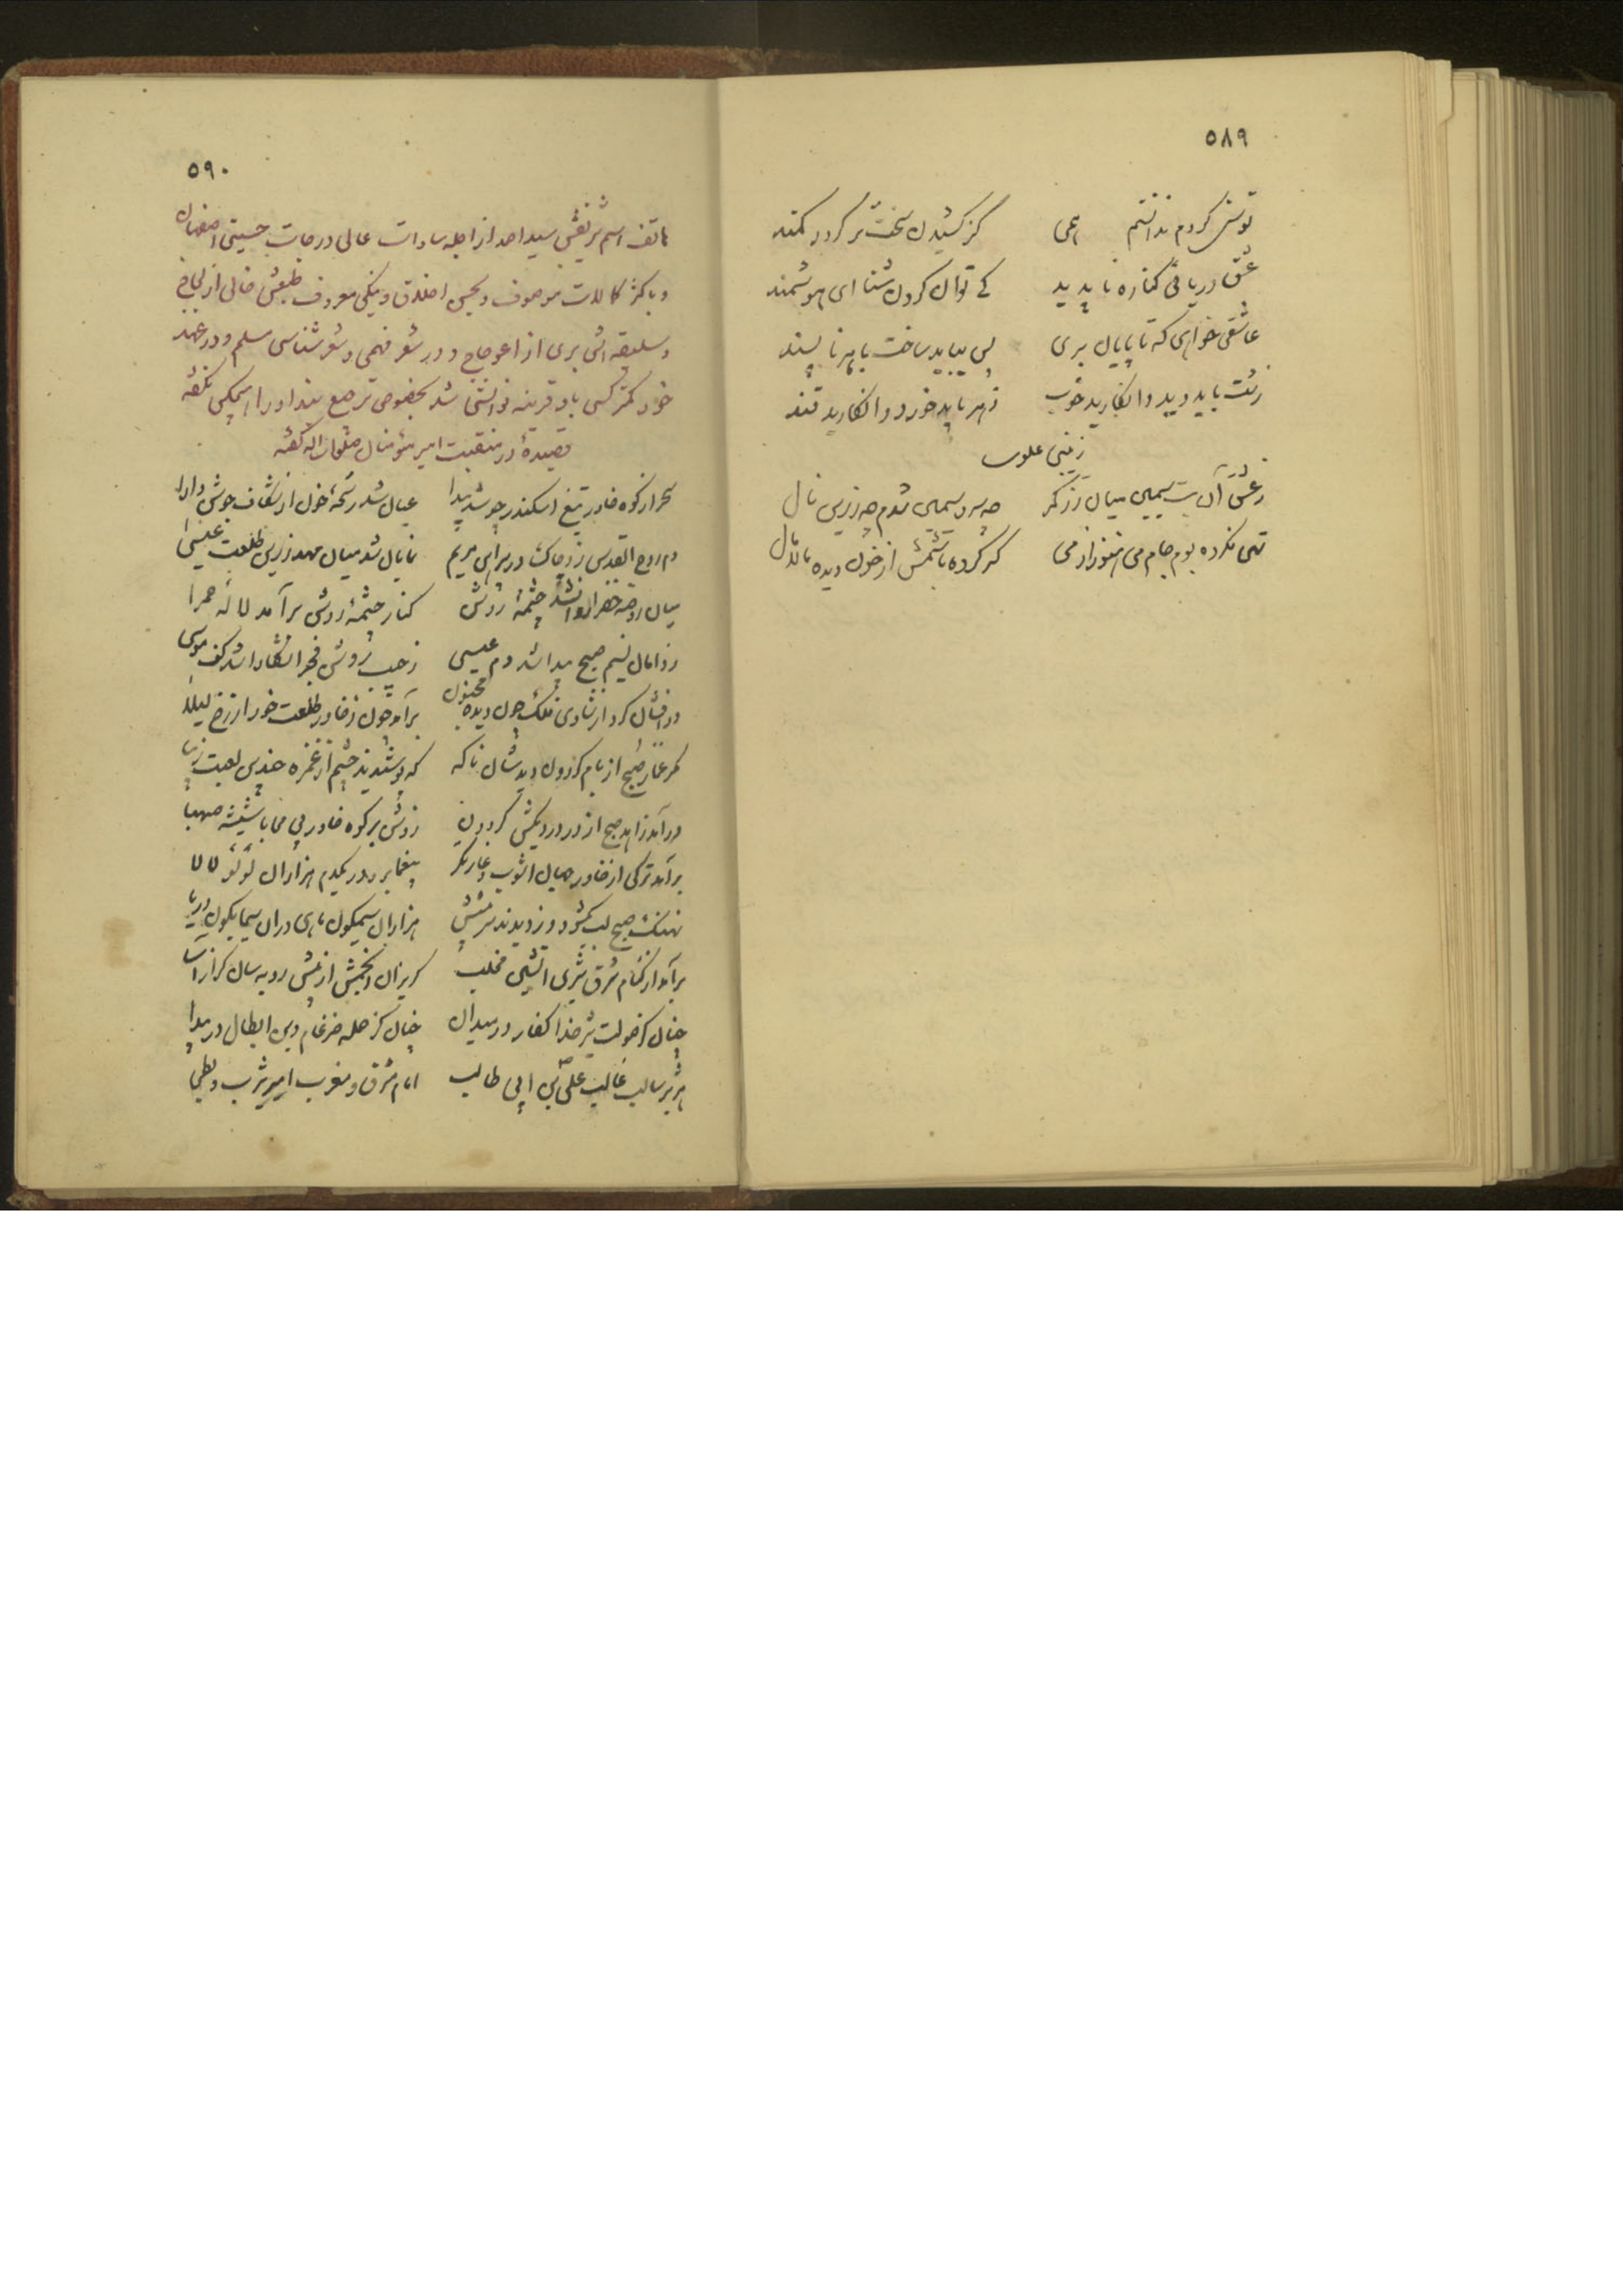 ٥٨٩
توسنی کردم ندانستم همی    کز کشیدن سخت‌تر گردد کمند
عشق دریائی کناره ناپدید    کے توان کردن شنا ای هوشمند
عاشقی خواهی که تا پایان بری    پس بباید ساخت با هر ناپسند
زشت باید دید و انگارید خوب    زهر باید خورد و انگارید قند
زینبی علوی
ز عشق آن بت سیمین میان زرکمر    چه سرو سیمین شدم چه زرین نال
تهی نکرده بدم جام می هنوز از می    که کرده باشمش از خون دیده مالامال
٥٩٠
هاتف اسم شریفش سید احمد از اجله سادات عالی درجات حسینی اصفهان
و باکثر کمالات موصوف و بحسن اخلاق و نیکی معروف طبعش خالی از لجاج
و سلیقه‌اش بری از اعوجاج و در شعر فهمی و شعر شناسی مسلم و در عهد
خود کمتر کسی باو قرینه توانستی شد بخصوص ترجیع بند او را کسی نگفته
قصیدهٔ در منقبت امیر مؤمنان صلوات الله گفته
سحر از کوه خاور تیغ اسکندر چو شد پیدا    عیان شد رشحهٔ خون از شکاف جوشن دارا
دم روح القدس زد چاک در پیراهن مریم    نمایان شد میان مهد زرین طلعت عیسی
میان روضه خضرا روان شد چشمهٔ روشن    کنار چشمهٔ روشن برآمد لاله حمرا
ز دامان نسیم صبح پیدا شد دم عیسی    ز جیب روشن فجر آشکارا شد کف موسی
در افشان کرد از شادی فلک چون دیده مجنون    برآمد چون ز خاور طلعت خور از رخ لیلا
مگر غماز صبح از بام گردون دیدشان ناگه    که پوشیدند چشم از غمزه چندین لعبت زیبا
درآمد زاهد صبح از در دردیکش گردون    زدش بر کوه خاور بی محابا شیشه صهبا
برآمد ترکی از خاور جهان آشوب و غارتگر    بیغما برد در یکدم هزاران لؤلؤ لالا
نهنگ صبح لب بگشود و دزدیدند سر پیشش    هزاران سیمگون ماهی در این سیمابگون دریا
برآمد از کنام شرق شیری آتشین مخلب    گریزان انجمش از پیش روبه سان گراز آسا
چنان کز صولت شیر خدا کفار در میدان    چنان کز حمله ضرغام دین ابطال در هیجا
هژبر سالب غالب علی بن ابی طالب    امام مشرق و مغرب امیر یثرب و بطحی